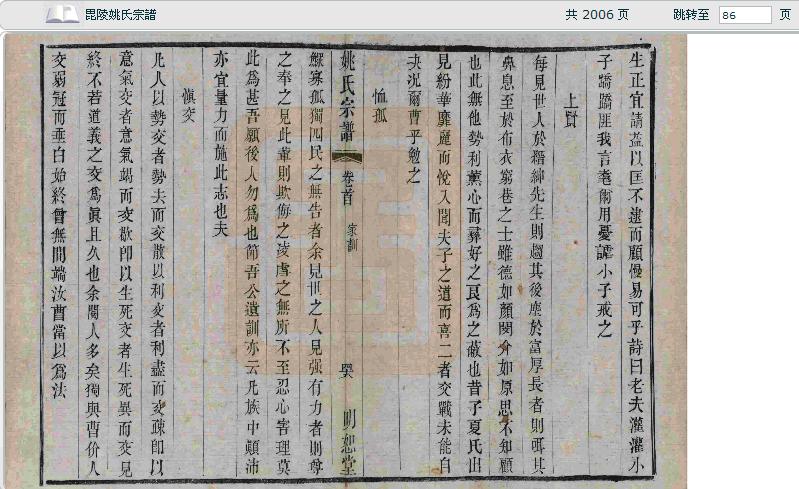 毘陵姚氏宗譜
共 2006 页
跳转至 86 页
生正宜請益以匡不逮而顧慢易可乎詩曰老夫灌灌小
子蹻蹻匪我言耄爾用憂謔小子戒之
上賢
每見世人於縉紳先生則趨其後塵於富厚長者則弭其
鼻息至於布衣窮巷之士雖德如顏閔介如原思不知顧
也此無他勢利薰心而彝好之良為之蔽也昔子夏氏出
見紛華靡麗而悅入聞夫子之道而喜二者交戰未能自
決況爾曹乎勉之
恤孤
姚氏宗譜
卷首
家訓
明恕堂
鰥寡孤獨四民之無告者余見世之人見强有力者則尊
之奉之見此輩則欺侮之凌虐之無所不至忍心害理莫
此為甚吾願後人勿為也節吾公遺訓亦云凡族中顛沛
亦宜量力而施此志也夫
慎交
凡人以勢交者勢去而交散以利交者利盡而交疎卽以
意氣交者意氣竭而交散卽以生死交者生死異而交見
終不若道義之交為眞且久也余閱人多矣獨與曹价人
交弱冠而垂白始終曾無間端汝曹當以為法